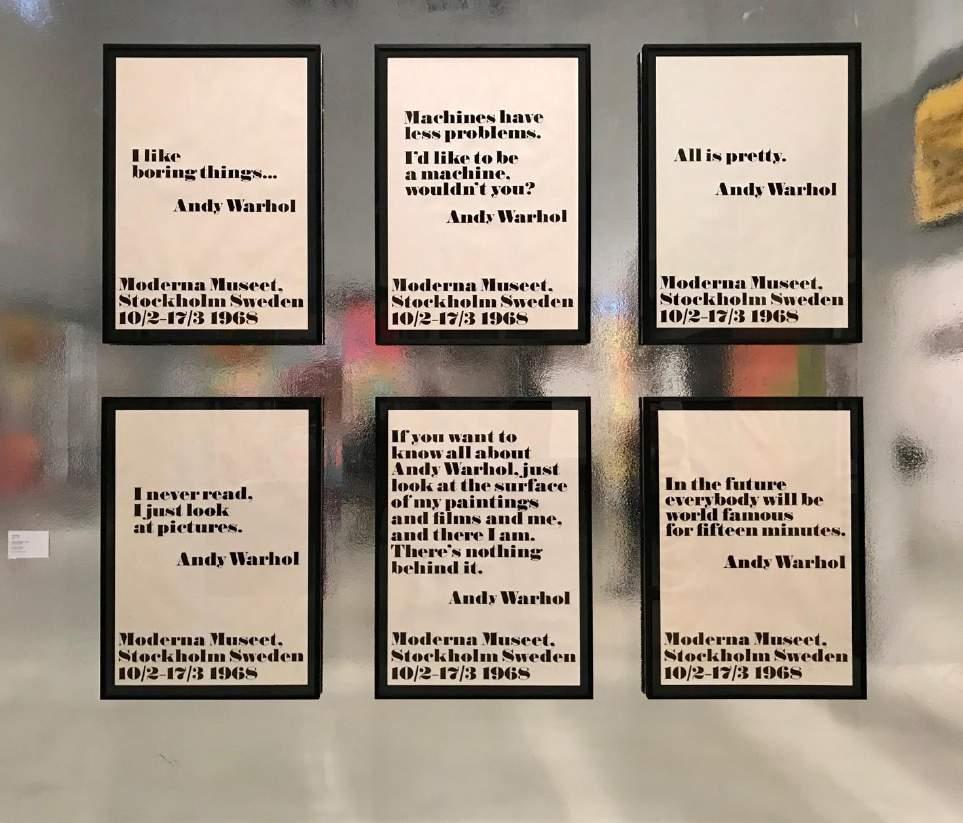 I like
boring things...
Andy Warhol
Moderna Museet,
Stockholm Sweden
10/2-17/3 1968
Machines have
less problems.
I'd like to be
a machine,
wouldn't you?
Andy Warhol
Moderna Museet,
Stockholm Sweden
10/2-17/3 1968
All is pretty.
Andy Warhol
Moderna Museet,
Stockholm Sweden
10/2-17/3 1968
I never read,
I just look
at pictures.
Andy Warhol
Moderna Museet,
Stockholm Sweden
10/2-17/3 1968
If you want to
know all about
Andy Warhol, just
look at the surface
of my paintings
and films and me,
and there I am.
There's nothing
behind it.
Andy Warhol
Moderna Museet,
Stockholm Sweden
10/2-17/3 1968
In the future
everybody will be
world famous
for fifteen minutes.
Andy Warhol
Moderna Museet,
Stockholm Sweden
10/2-17/3 1968